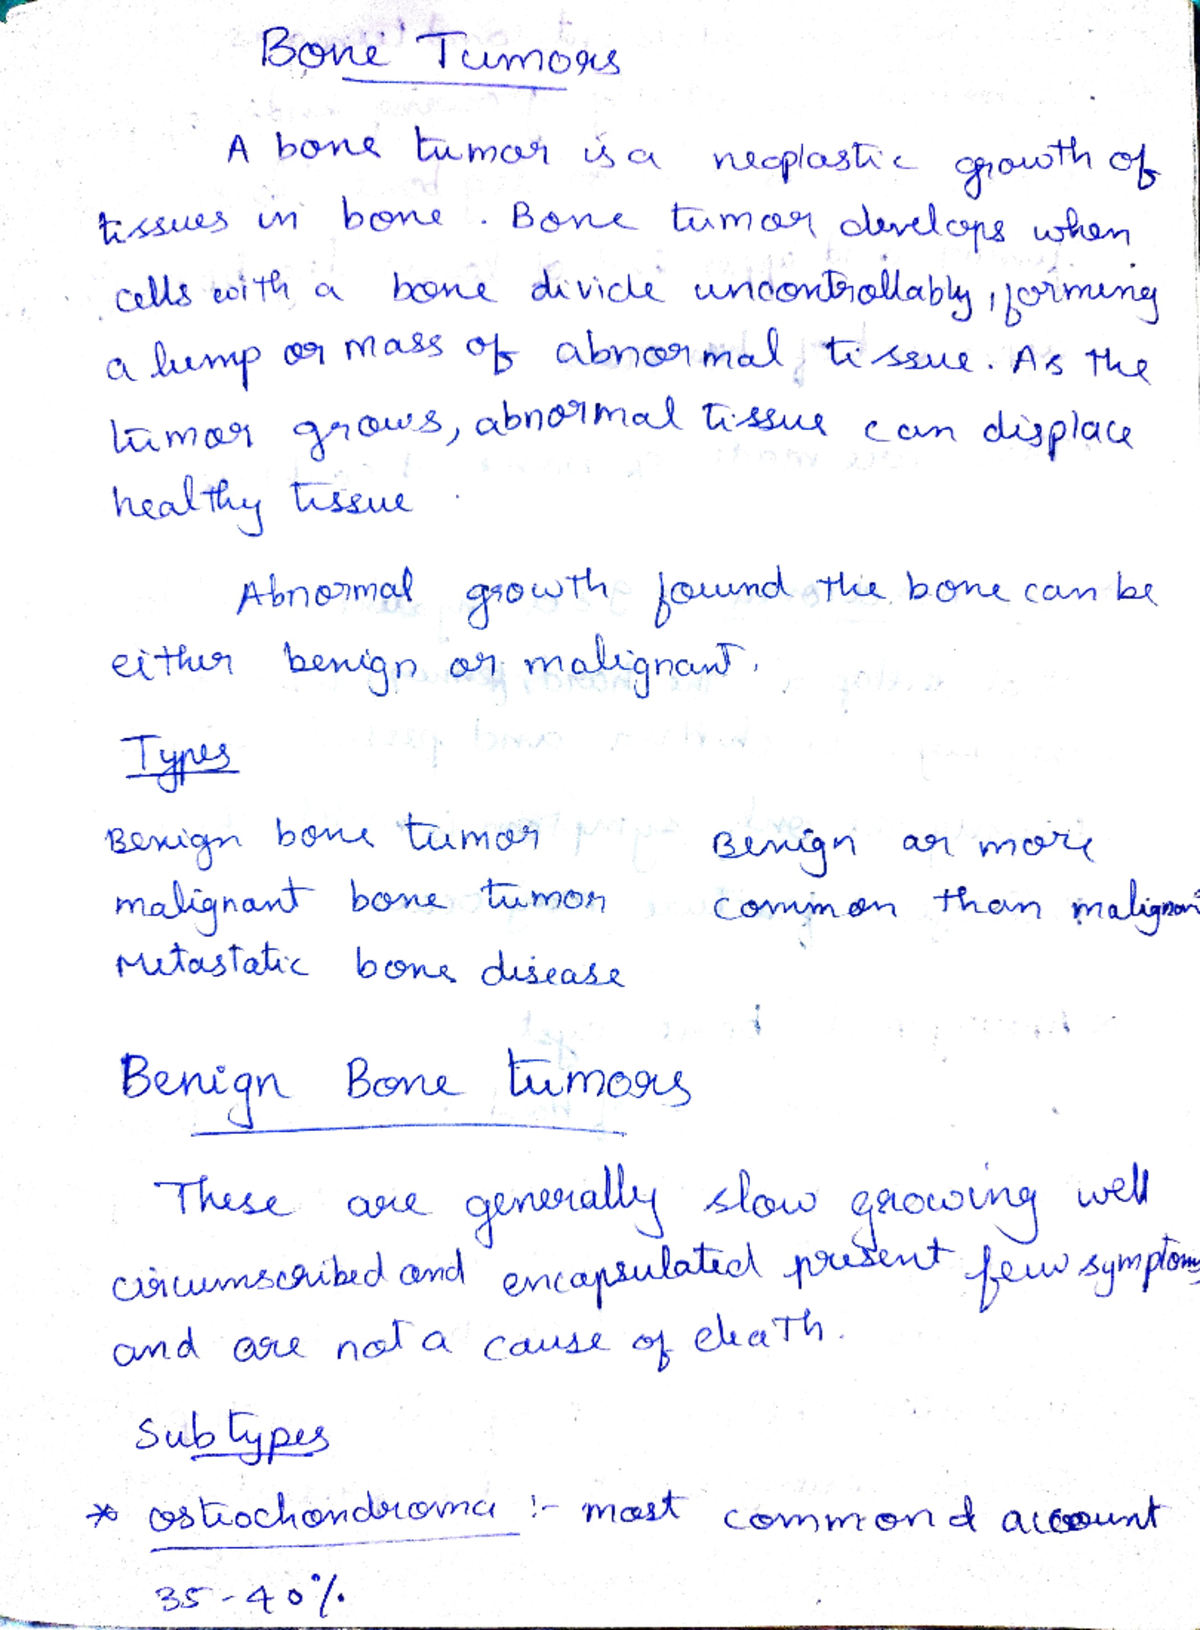 Bone Tumors
A bone tumor is a neoplastic growth of
tissues in bone. Bone tumor develops when
cells with a bone divide uncontrollably, forming
a lump or mass of abnormal tissue. As the
tumor grows, abnormal tissue can displace
healthy tissue.
Abnormal growth found the bone can be
either benign or malignant.
Types
Benign bone tumor
malignant bone tumor
Metastatic bone disease
Benign ar more
common than malignant
Benign Bone tumors
These are generally slow growing well
circumscribed and encapsulated present few symptoms
and are not a cause of death.
Subtypes
* osteochondroma :- most common & account
35-40%